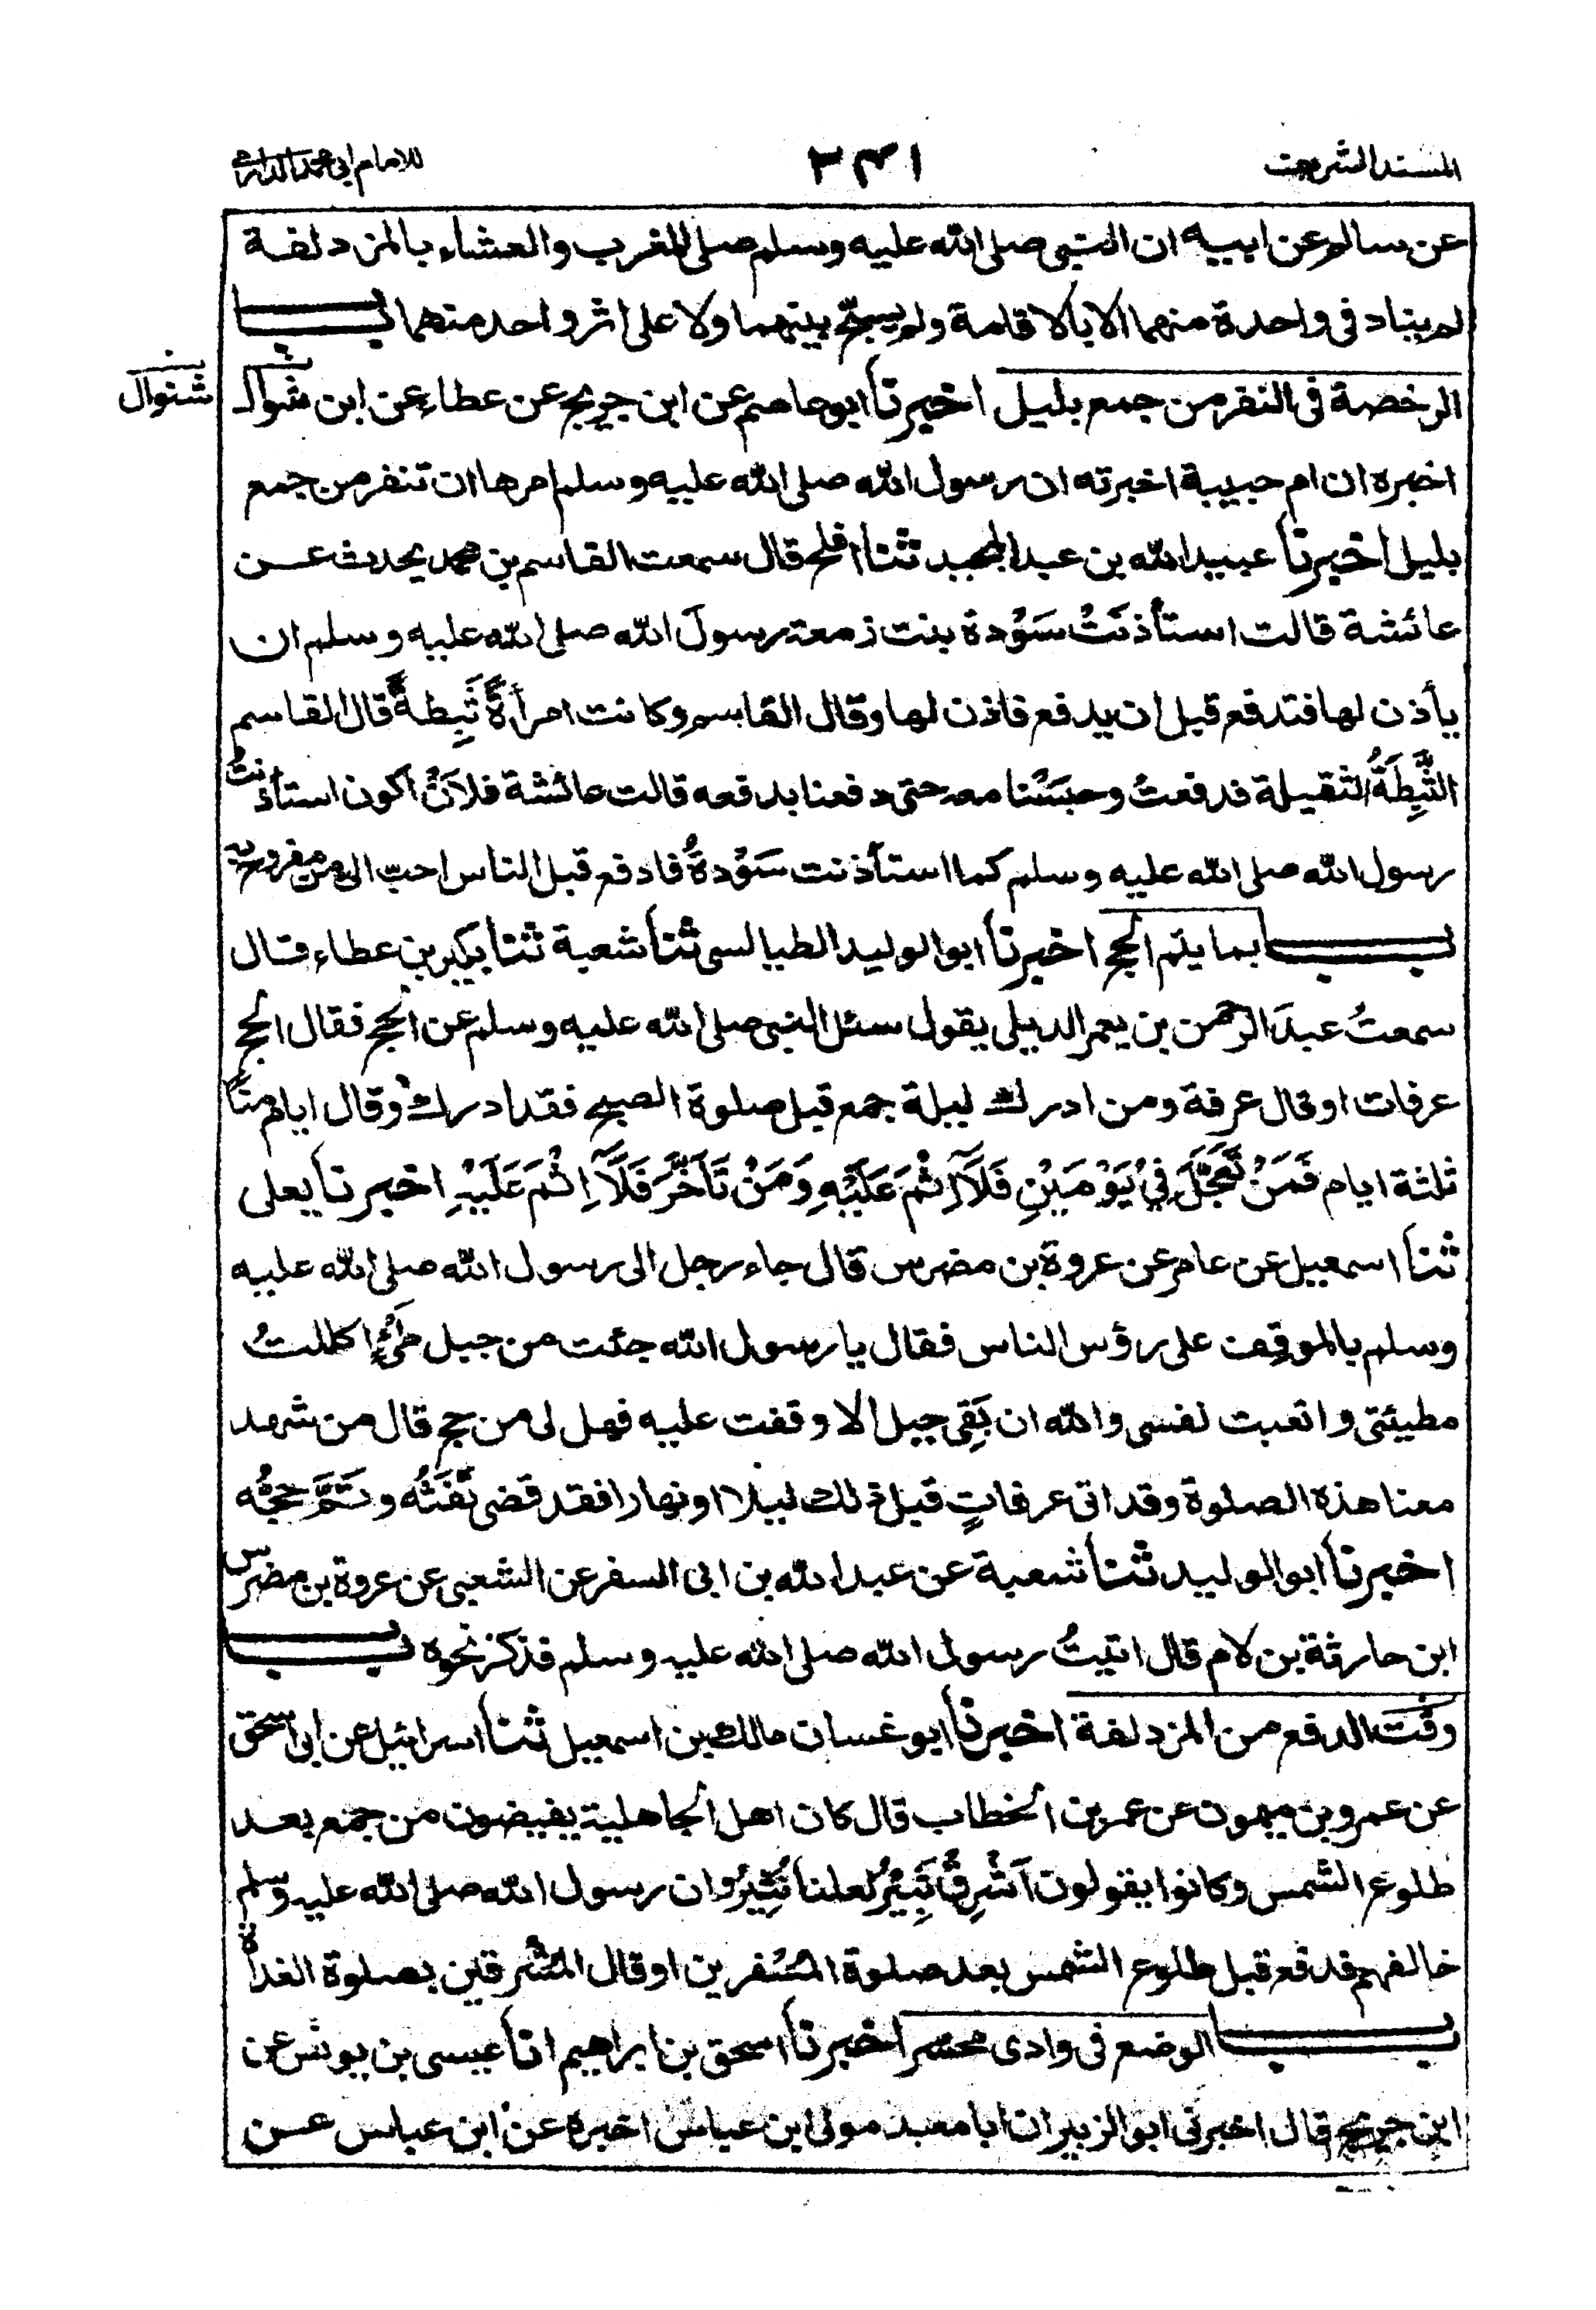 المسند الشريف
٢٤١
للامام ابى محمد الدارمى
عن سالم عن ابيه ان النبى صلى الله عليه وسلم صلى المغرب والعشاء بالمزدلفة
لم يناد فى واحدة منهما الا بالاقامة ولم يسبح بينهما ولا على اثر واحد منهما باب
الرخصة فى النفر من جمع بليل اخبرنا ابو عاصم عن ابن جريج عن عطاء عن ابن شوال
شوال
اخبره ان ام حبيبة اخبرته ان رسول الله صلى الله عليه وسلم امرها ان تنفر من جمع
بليل اخبرنا عبيد الله بن عبد المجيد ثنا افلح قال سمعت القاسم بن محمد يحدث عن
عائشة قالت استأذنَتْ سَوْدة بنت زمعة رسولَ الله صلى الله عليه وسلم ان
يأذن لها فتدفع قبل ان يدفع فاذن لها وقال القاسم وكانت امرأةً ثَبِطةً قال القاسم
الثَّبِطَةُ الثقيلة فدفعتْ وحبَسْنا معه حتى دفعنا بدفعه قالت عائشة فلاَنْ اكون استأذنتُ
رسول الله صلى الله عليه وسلم كما استأذنت سَوْدةُ فادفع قبل الناس احبّ الى من مفروح به
باب بما يتم الحج اخبرنا ابو الوليد الطيالسى ثنا شعبة ثنا بكير بن عطاء قال
سمعتُ عبدَ الرحمن بن يعمر الديلى يقول سئل النبى صلى الله عليه وسلم عن الحج فقال الحج
عرفات او قال عرفة ومن ادرك ليلة جمع قبل صلوة الصبح فقد ادرك وقال ايام منًا
ثلثة ايام فَمَنْ تَعَجَّلَ فِيْ يَوْمَيْنِ فَلَآ اِثْمَ عَلَيْهِ وَمَنْ تَاَخَّرَ فَلَآ اِثْمَ عَلَيْهِ اخبرنا يعلى
ثنا اسمعيل عن عامر عن عروة بن مضرس قال جاء رجل الى رسول الله صلى الله عليه
وسلم بالموقِف على رؤس الناس فقال يا رسول الله جئت من جبل طَىْءٍ اكللتُ
مطيئتى واتعبت نفسى والله ان بَقِىَ جبل الا وقفت عليه فهل لى من حج قال من شهد
معنا هذه الصلوة وقد اتى عرفاتٍ قبل ذلك ليلا او نهارا فقد قضى تَفَثَه وتَمَّ حجُّه
اخبرنا ابو الوليد ثنا شعبة عن عبد الله بن ابى السفر عن الشعبى عن عروة بن مضرس
ابن حارثة بن لام قال اتيتُ رسول الله صلى الله عليه وسلم فذكر نحوه باب
وقت الدفع من المزدلفة اخبرنا ابو غسان مالك بن اسمعيل ثنا اسرائيل عن ابى اسحق
عن عمرو بن ميمون عن عمر بن الخطاب قال كان اهل الجاهلية يفيضون من جمع بعد
طلوع الشمس وكانوا يقولون اَشْرِقْ ثَبِيْرُ لعلنا نُغِيْرُ وان رسول الله صلى الله عليه وسلم
خالفهم فدفع قبل طلوع الشمس بعد صلوة المُسْفرين او قال المُشْرقين بصلوة الغداة
باب الوضع فى وادى محسر اخبرنا اسحق بن ابراهيم انا عيسى بن يونس عن
ابن جريج قال اخبرنى ابو الزبير ان ابا معبد مولى ابن عباس اخبره عن ابن عباس عن